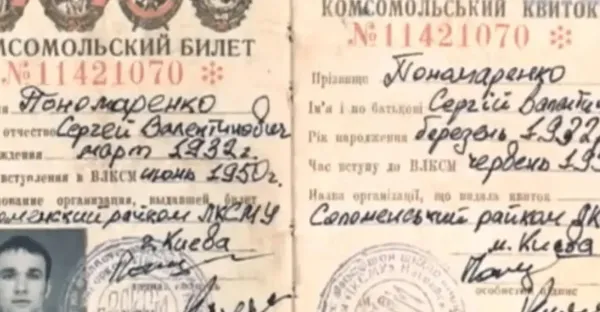 МСОМОЛЬСКИЙ БИЛЕТ
№11421070
Пономаренко
отчество Сергей Валентинович
ждения март 1932г.
вступления в ВЛКСМ июнь 1950г.
ование организации, выдавшей билет
оменский райком ЛКСМУ
г. Киева
КОМСОМОЛЬСЬКИЙ КВИТОК
№11421070
Прізвище Пономаренко
Ім'я і по батькові Сергій Валенти
Рік народження березень 1932
Час вступу до ВЛКСМ червень 19
Назва організації, що видала квиток
Соломенський райком ЛК
м. Києва
особистий підпис